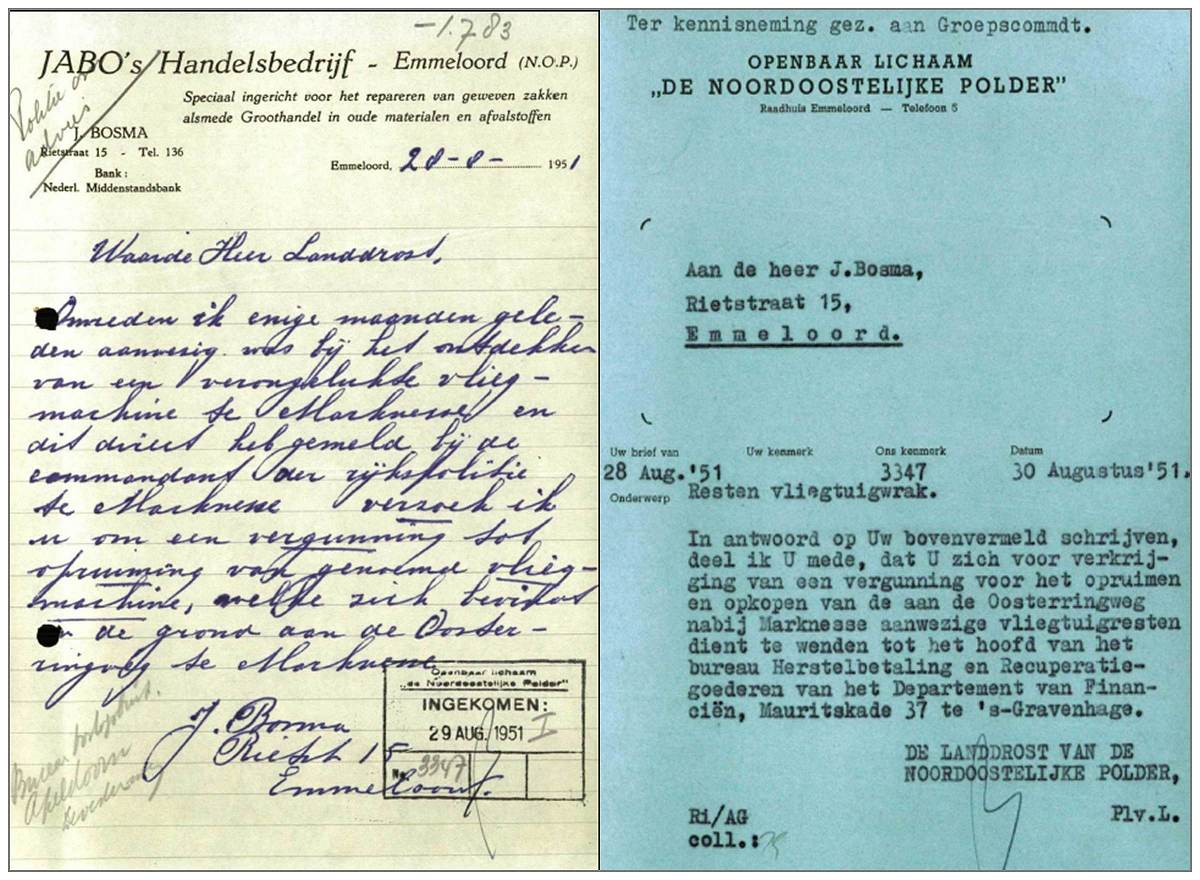 -1.783
JABO's Handelsbedrijf - Emmeloord (N.O.P.)
Speciaal ingericht voor het repareren van geweven zakken
alsmede Groothandel in oude materialen en afvalstoffen
Politie
advies
J. BOSMA
Rietstraat 15 - Tel. 136
Bank:
Nederl. Middenstandsbank
Emmeloord, 28-8- 1951
Waarde Heer Landdrost,
Omreden ik enige maanden gele-
den aanwesig was bij het ontdekken
van een verongelukte vlieg-
machine te Marknesse, en
dit direct heb gemeld bij de
commandant der rijkspolitie
te Marknesse versoek ik
u om een vergunning tot
opruiming van genoemd vlieg-
machine, welke zich bevindt
in de grond aan de Ooster-
ringweg te Marknesse
J. Bosma
Rietst 15
Emmeloord.
Openbaar lichaam
„de Noordoostelijke Polder"
INGEKOMEN:
29 AUG. 1951 I
No. 3347
Bureau
Apeldoorn
Ter kennisneming gez. aan Groepscommdt.
OPENBAAR LICHAAM
„DE NOORDOOSTELIJKE POLDER"
Raadhuis Emmeloord — Telefoon 5
Aan de heer J.Bosma,
Rietstraat 15,
Emmeloord.
Uw brief van Uw kenmerk Ons kenmerk Datum
28 Aug.'51 3347 30 Augustus'51.
Onderwerp Resten vliegtuigwrak.
In antwoord op Uw bovenvermeld schrijven,
deel ik U mede, dat U zich voor verkrij-
ging van een vergunning voor het opruimen
en opkopen van de aan de Oosterringweg
nabij Marknesse aanwezige vliegtuigresten
dient te wenden tot het hoofd van het
bureau Herstelbetaling en Recuperatie-
goederen van het Departement van Finan-
ciën, Mauritskade 37 te 's-Gravenhage.
DE LANDDROST VAN DE
NOORDOOSTELIJKE POLDER,
Plv.L.
Ri/AG
coll.: